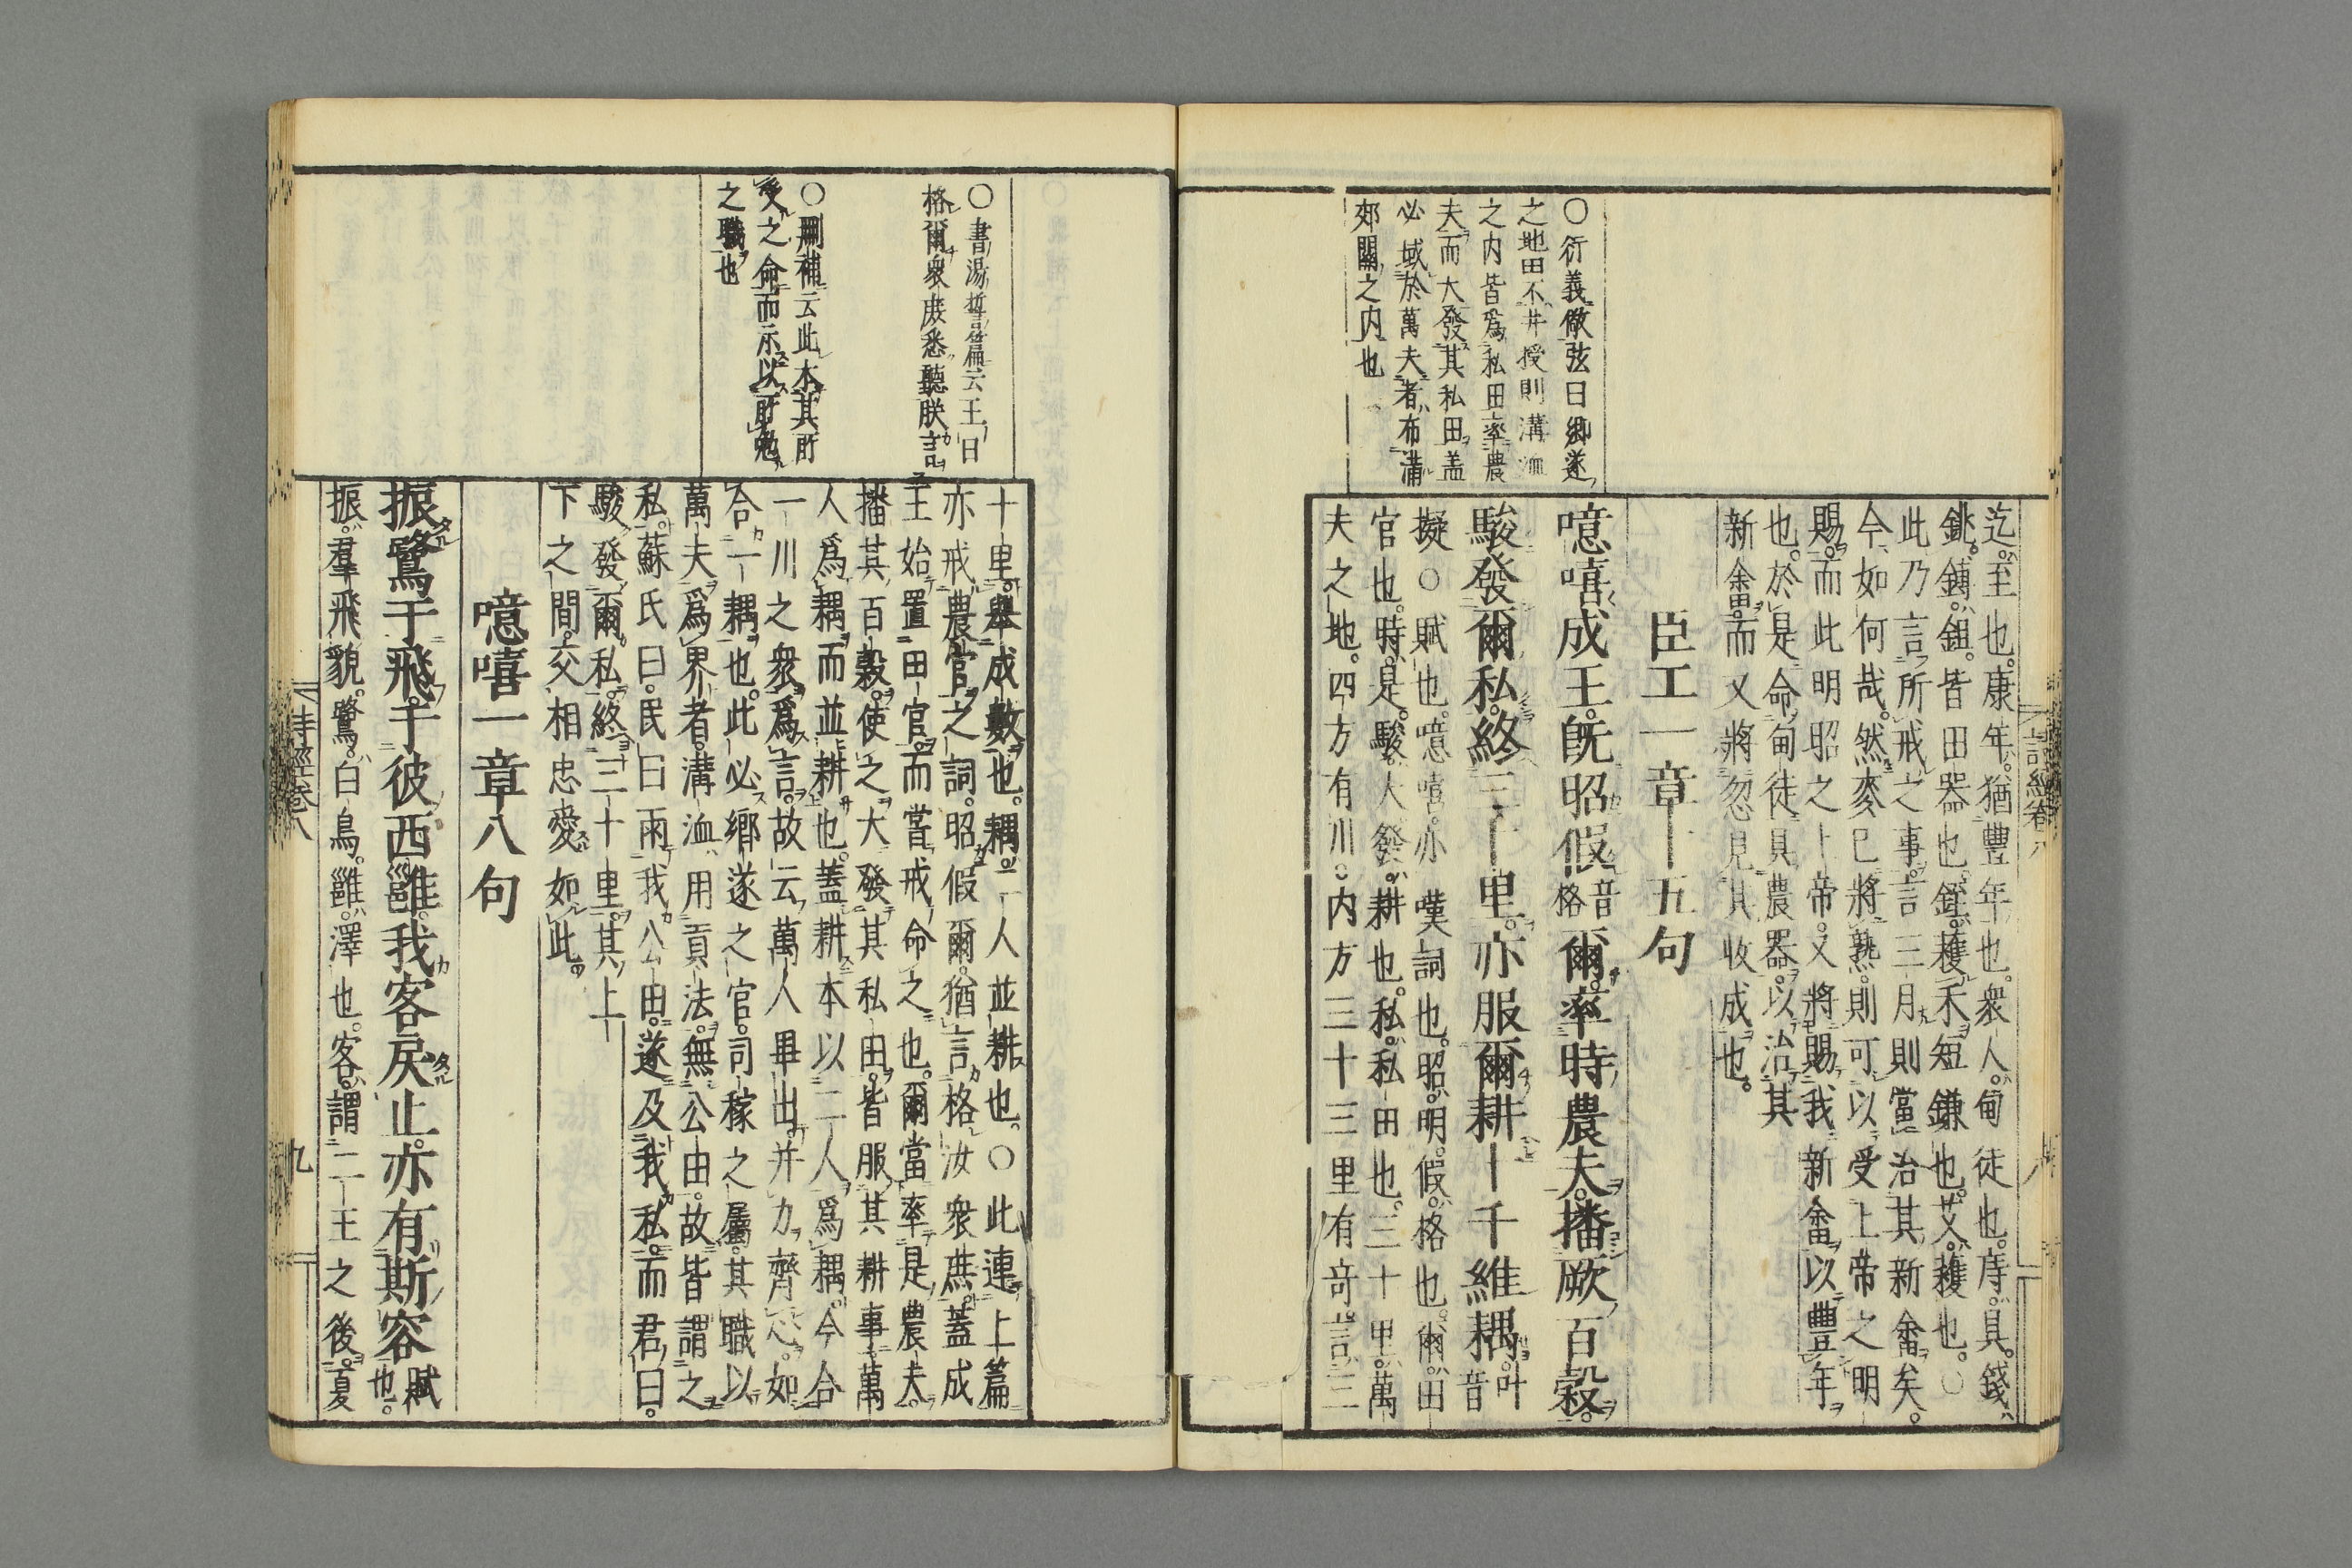 ○衍義倣弦曰鄉遂
之地田不井授則溝洫
之内皆爲私田率農
夫而大發其私田盖
必域於萬夫者布溝
郊關之内也
迄至也康年猶豐年也衆人甸徒也庤具錢
銚鎛鉏皆田器也銍穫禾短鎌也艾穫也○
此乃言所戒之事言三月則當治其新畬矣
今如何哉然麥已將熟則可以受上帝之明
賜而此明昭之上帝又將賜我新畬以豐年
也於是命甸徒具農器以治其
新畬而又將忽見其收成也
臣工一章十五句
噫嘻成王旣昭假音格爾率時農夫播厥百穀
駿發爾私終三十里亦服爾耕十千維耦叶音
擬○賦也噫嘻亦嘆詞也昭明假格也爾田
官也時是駿大發耕也私私田也三十里萬
夫之地四方有川内方三十三里有奇言三
詩經卷八
○書湯誓篇云王曰
格爾衆庶悉聽朕言
○刪補云此本其所
受之命而示以所勉
之職也
十里舉成數也耦二人並耕也○此連上篇
亦戒農官之詞昭假爾猶言格汝衆庶蓋成
王始置田官而嘗戒命之也爾當率是農夫
播其百穀使之大發其私田皆服其耕事萬
人爲耦而並耕也蓋耕本以二人爲耦今合
一川之衆爲言故云萬人畢出并力齊心如
合一耦也此必鄉遂之官司稼之屬其職以
萬夫爲界者溝洫用貢法無公田故皆謂之
私蘇氏曰民曰雨我公田遂及我私而君曰
駿發爾私終三十里其上
下之間交相忠愛如此
噫嘻一章八句
振鷺于飛于彼西雝我客戾止亦有斯容賦也
振羣飛貌鷺白鳥雝澤也客謂二王之後夏
詩經卷八
九